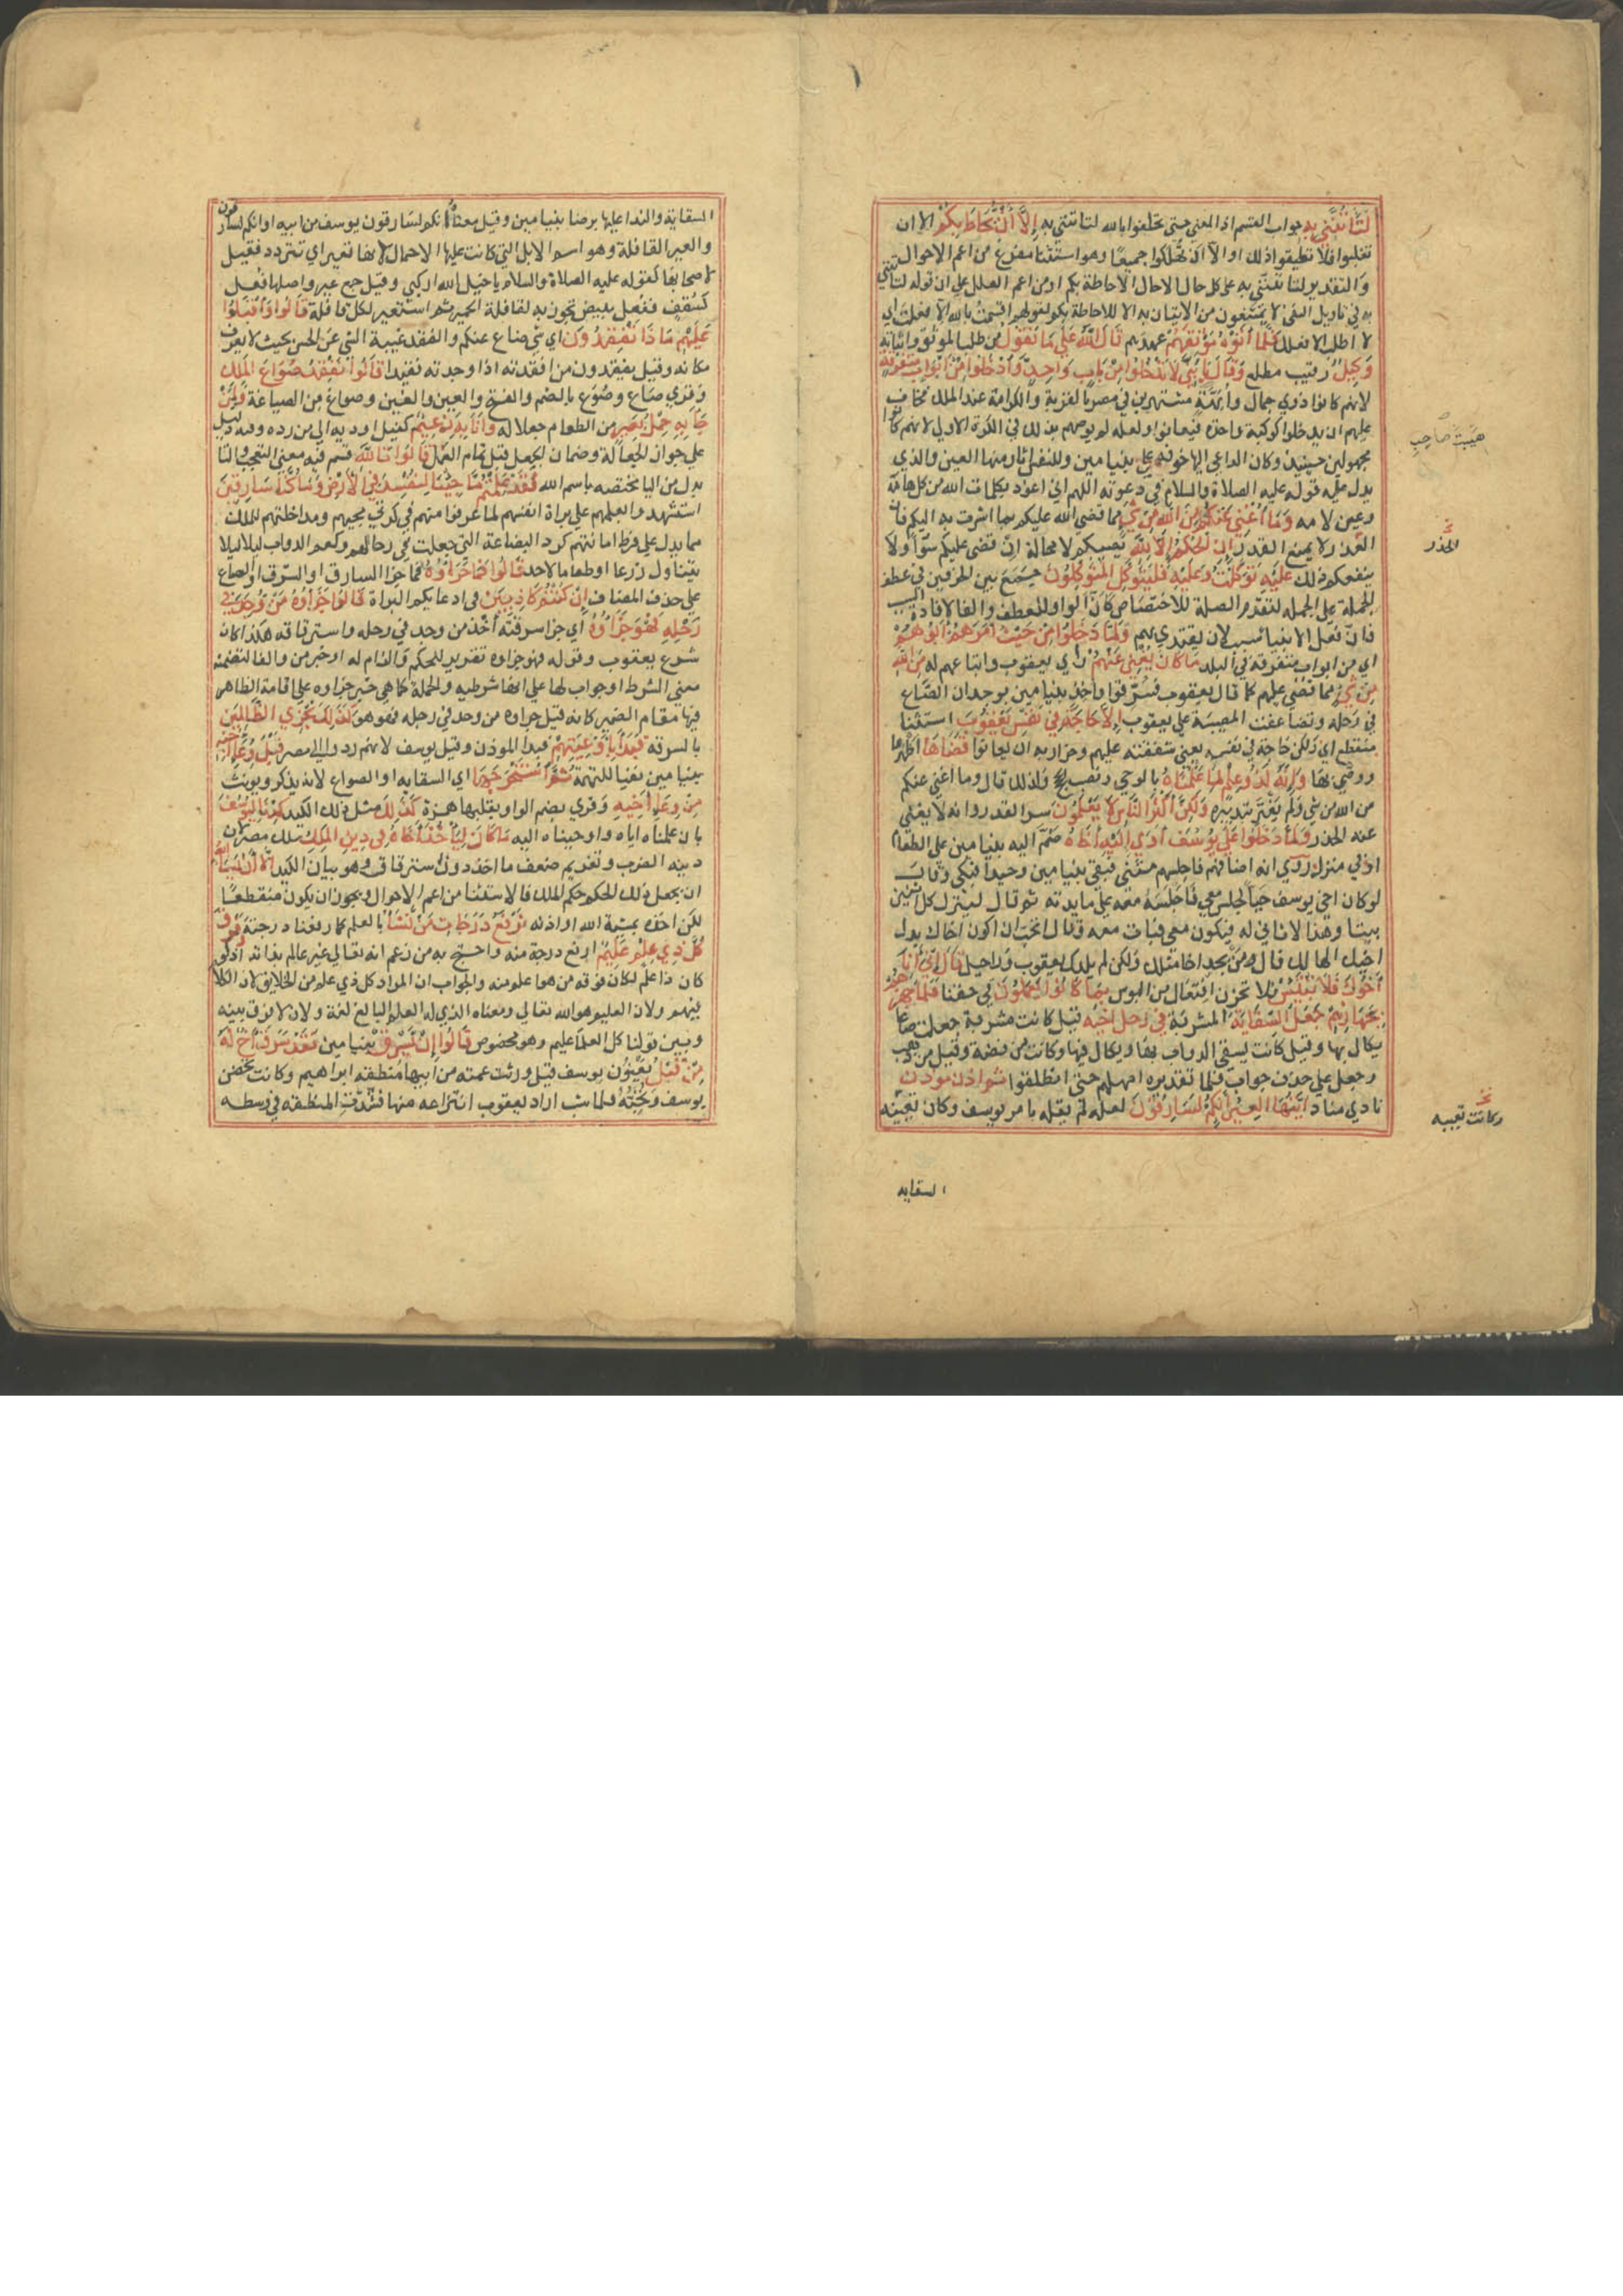 لَتَأْتُنَّنِي بِهِ جواب القسم اذ المعنى حتى تحلفوا بالله لتاتنني به إِلَّا أَنْ يُحَاطَ بِكُمْ الا ان
تغلبوا فلا تطيقوا ذلك او الا ان تهلكوا جميعا وهو استثنا مفرغ من اعم الاحوال
والتقدير لتاتنني به على كل حال الا حال الاحاطة بكم او من اعم العلل على ان قوله لتاتنني
به في تاويل النفي لا تمتنعون من الاتيان به الا للاحاطة بكم كقولهم اقسمت بالله الا فعلت اي
لا اطلب الا فعلك فَلَمَّا أَتَوْهُ مَوْثِقَهُمْ عهدهم قَالَ اللَّهُ عَلَى مَا نَقُولُ من طلب الموثق واتيانه
وَكِيلٌ رقيب مطلع وَقَالَ يَا بَنِيَّ لَا تَدْخُلُوا مِنْ بَابٍ وَاحِدٍ وَادْخُلُوا مِنْ أَبْوَابٍ مُتَفَرِّقَةٍ
لانهم كانوا ذوي جمال وابهة مشتهرين في مصر بالقربة والكرامة عند الملك فخاف
عليهم ان يدخلوا كوكبة واحدة فيعانوا ولعله لم يوصهم بذلك في الكرة الاولى لانهم كانوا
مجهولين حينئذ وكان الداعي اليها خوفه على بنيامين وللنفس اثار منها العين والذي
يدل عليه قوله عليه الصلاة والسلام في دعوته اللهم اني اعوذ بكلمات الله من كل هامة
وعين لامه وَمَا أُغْنِي عَنْكُمْ مِنَ اللَّهِ مِنْ شَيْءٍ مما قضى الله عليكم بما اشرت به اليكم فان
القدر لا يمنع القدر إِنِ الْحُكْمُ إِلَّا لِلَّهِ يصيبكم لا محالة ان قضى عليكم سوا ولا
ينفعكم ذلك عَلَيْهِ تَوَكَّلْتُ وَعَلَيْهِ فَلْيَتَوَكَّلِ الْمُتَوَكِّلُونَ جمع بين الحرفين في عطف
الجملة على الجملة لتقدم الصلة للاختصاص كان الواو للعطف والفا لافادة السبب
فان فعل الانبيا سبب لان يقتدي بهم وَلَمَّا دَخَلُوا مِنْ حَيْثُ أَمَرَهُمْ أَبُوهُمْ
اي من ابواب متفرقة في البلد مَا كَانَ يُغْنِي عَنْهُمْ راي يعقوب واتباعهم له مِنَ اللَّهِ
مِنْ شَيْءٍ مما قضى عليهم كما قال يعقوب فسرقوا واخذ بنيامين بوجدان الصاع
في رحله وتضاعفت المصيبة على يعقوب إِلَّا حَاجَةً فِي نَفْسِ يَعْقُوبَ استثنا
منقطع اي ولكن حاجة في نفسه يعني شفقته عليهم وحرازته ان يعانوا قَضَاهَا اظهرها
ووصى بها وَإِنَّهُ لَذُو عِلْمٍ لِمَا عَلَّمْنَاهُ بالوحي ونصب الحجج ولذلك قال وما اغني عنكم
من الله من شي ولم يغتر بتدبيره وَلَكِنَّ أَكْثَرَ النَّاسِ لَا يَعْلَمُونَ سر القدر وانه لا يغني
عنه الحذر وَلَمَّا دَخَلُوا عَلَى يُوسُفَ آوَى إِلَيْهِ أَخَاهُ ضم اليه بنيامين على الطعام
او في منزله روي انه اضافهم فاجلسهم مثنى فبقي بنيامين وحيدا فبكى وقال
لو كان اخي يوسف حيا لجلس معي فاجلسه معه على مايدته ثم قال لينزل كل اثنين
بيتا وهذا لا ثاني له فيكون معي فبات معه وقال اتحب ان اكون اخاك بدل
اخيك الهالك قال من يجد اخا مثلك ولكن لم يلدك يعقوب وراحيل قَالَ إِنِّي أَنَا
أَخُوكَ فَلَا تَبْتَئِسْ فلا تحزن افتعال من البوس بِمَا كَانُوا يَعْمَلُونَ في حقنا فَلَمَّا جَهَّزَهُمْ
بِجَهَازِهِمْ جَعَلَ السِّقَايَةَ المشربة فِي رَحْلِ أَخِيهِ قيل كانت مشربة جعلت صاعا
يكال بها وقيل كانت يسقى الدواب بها ويكال فيها وكانت من فضة وقيل من ذهب
وجعل على حذف جواب فلما تقديره امهلهم حتى انطلقوا ثُمَّ أَذَّنَ مُؤَذِّنٌ
نادى مناد أَيَّتُهَا الْعِيرُ إِنَّكُمْ لَسَارِقُونَ لعله لم يقله بامر يوسف وكان تعبيه
هيبت صاحب
الحذر
وكانت تعبيه
السقايه
السقاية والندا عليها برضا بنيامين وقيل معناه انكم لسارقون يوسف من ابيه او انكم لسارقون
والعير القافلة وهو اسم الابل التي كانت عليها الاحمال لانها تعير اي تتردد فقيل
لاصحابها كقوله عليه الصلاة والسلام يا خيل الله اركبي وقيل جمع عير واصلها فعل
كسقف ففعل به ما فعل ببيض تجوز به لقافلة الحمير ثم استعير لكل قافلة قَالُوا وَأَقْبَلُوا
عَلَيْهِمْ مَاذَا تَفْقِدُونَ اي شي ضاع عنكم والفقد غيبة الشي عن الحس بحيث لا يعرف
مكانه وقيل تفقدون من افقدته اذا وجدته فقيدا قَالُوا نَفْقِدُ صُوَاعَ الْمَلِكِ
وقري صاع وصوع بالضم والفتح والعين والغين وصواغ من الصياغة وَلِمَنْ
جَاءَ بِهِ حِمْلُ بَعِيرٍ من الطعام جعلا له وَأَنَا بِهِ زَعِيمٌ كفيل اوديه الى من رده وفيه دليل
على جواز الجعالة وضمان الجعل قبل تمام العمل قَالُوا تَاللَّهِ قسم فيه معنى التعجب والتا
بدل من البا مختصه باسم الله لَقَدْ عَلِمْتُمْ مَا جِئْنَا لِنُفْسِدَ فِي الْأَرْضِ وَمَا كُنَّا سَارِقِينَ
استشهدوا بعلمهم على براة انفسهم لما عرفوا منهم في كرتي مجيهم ومداخلتهم للملك
مما يدل على فرط امانتهم كرد البضاعة التي جعلت في رحالهم وكعم الدواب ليلا
يتناول زرعا او طعاما لاحد قَالُوا فَمَا جَزَاؤُهُ فما جزا السارق او السرق او الصواع
على حذف المضاف إِنْ كُنْتُمْ كَاذِبِينَ في ادعايكم البراة قَالُوا جَزَاؤُهُ مَنْ وُجِدَ فِي
رَحْلِهِ فَهُوَ جَزَاؤُهُ اي جزا سرقته اخذ من وجد في رحله واسترقاقه هكذا كان
شرع يعقوب وقوله فهو جزاوه تقرير للحكم والزام له او خبر من والفا لتضمنه
معنى الشرط او جواب لها على انها شرطيه والجملة كما هي خبر جزاوه على اقامة الظاهر
فيها مقام الضمير كانه قيل جزاوه من وجد في رحله فهو هو كَذَلِكَ نَجْزِي الظَّالِمِينَ
بالسرقة فَبَدَأَ بِأَوْعِيَتِهِمْ فبدا الموذن وقيل يوسف لانهم ردوا الى مصر قَبْلَ وِعَاءِ أَخِيهِ
بنيامين نفيا للتهمة ثُمَّ اسْتَخْرَجَهَا اي السقايه او الصواع لانه يذكر ويونث
مِنْ وِعَاءِ أَخِيهِ وقري بضم الواو وبقلبها همزة كَذَلِكَ مثل ذلك الكيد كِدْنَا لِيُوسُفَ
بان علمناه اياه واوحيناه اليه مَا كَانَ لِيَأْخُذَ أَخَاهُ فِي دِينِ الْمَلِكِ ملك مصر لان
دينه الضرب وتغريم ضعف ما اخذ دون استرقاق وهو بيان الكيد إِلَّا أَنْ يَشَاءَ اللَّهُ
ان يجعل ذلك الحكم حكم الملك فالاستثنا من اعم الاحوال ويجوز ان يكون منقطعا
لكن اخذه بمشية الله او اذنه نَرْفَعُ دَرَجَاتٍ مَنْ نَشَاءُ بالعلم كما رفعنا درجته وَفَوْقَ
كُلِّ ذِي عِلْمٍ عَلِيمٌ ارفع درجة منه واحتج به من زعم انه تعالى غير عالم بذاته اذ لو
كان ذا علم لكان فوقه من هو اعلم منه والجواب ان المراد كل ذي علم من الخلايق لان الكلام
فيهم ولان العليم هو الله تعالى ومعناه الذي له العلم البالغ لغة ولانه لا فرق بينه
وبين قولنا كل العلما عليم وهو مخصوص قَالُوا إِنْ يَسْرِقْ بنيامين فَقَدْ سَرَقَ أَخٌ لَهُ
مِنْ قَبْلُ يعنون يوسف قيل ورثت عمته من ابيها منطقه ابراهيم وكانت تحضن
يوسف وتحبه فلما شب اراد يعقوب انتزاعه منها فشدت المنطقه في وسطه